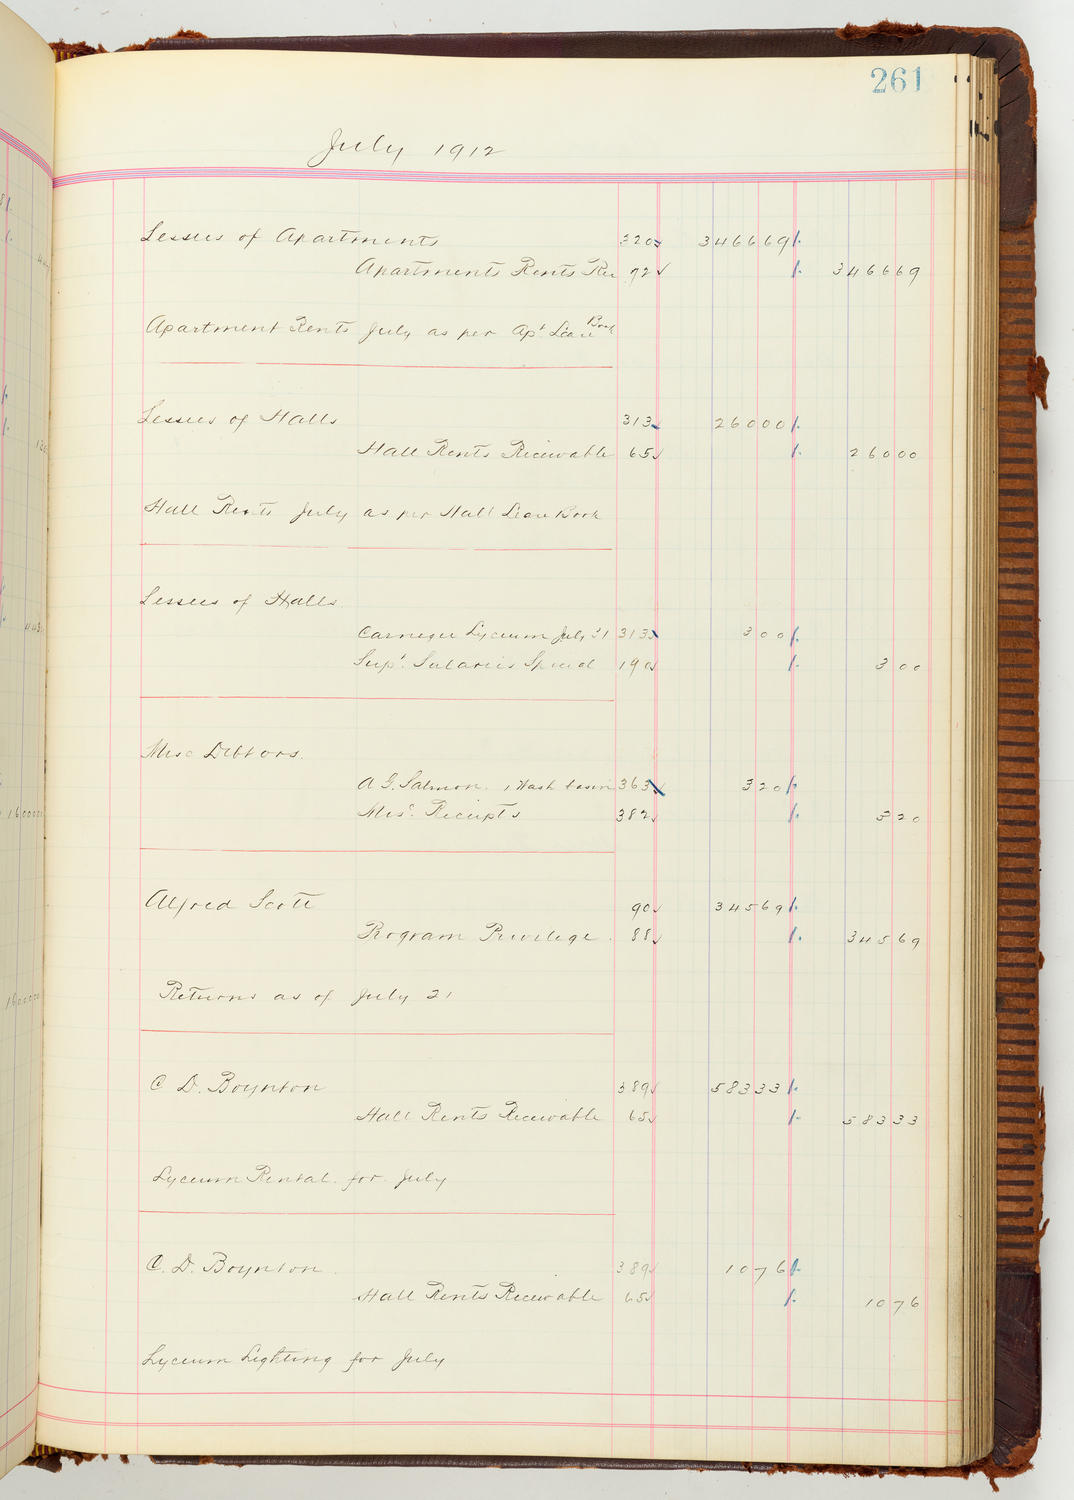 261
July 1912
Lessees of Apartments 320 346669
Apartments Rents Rec 72 346669
Apartment Rents July as per Apt Lease Book
Lessees of Halls 313 26000
Hall Rents Receivable 65 26000
Hall Rents July as per Hall Lease Book
Lessees of Halls
Carnegie Lyceum July 31 313 300
Supt. Salaries Special 190 300
Misc Debtors.
A G. Salmon. 1 Wash basin 363 520
Misc. Receipts 382 520
Alfred Scott 90 34569
Program Privilege. 88 34569
Returns as of July 21
C D. Boynton 389 58333
Hall Rents Receivable 65 58333
Lyceum Rental. for July
C. D. Boynton 389 1076
Hall Rents Receivable 65 1076
Lyceum Lighting for July